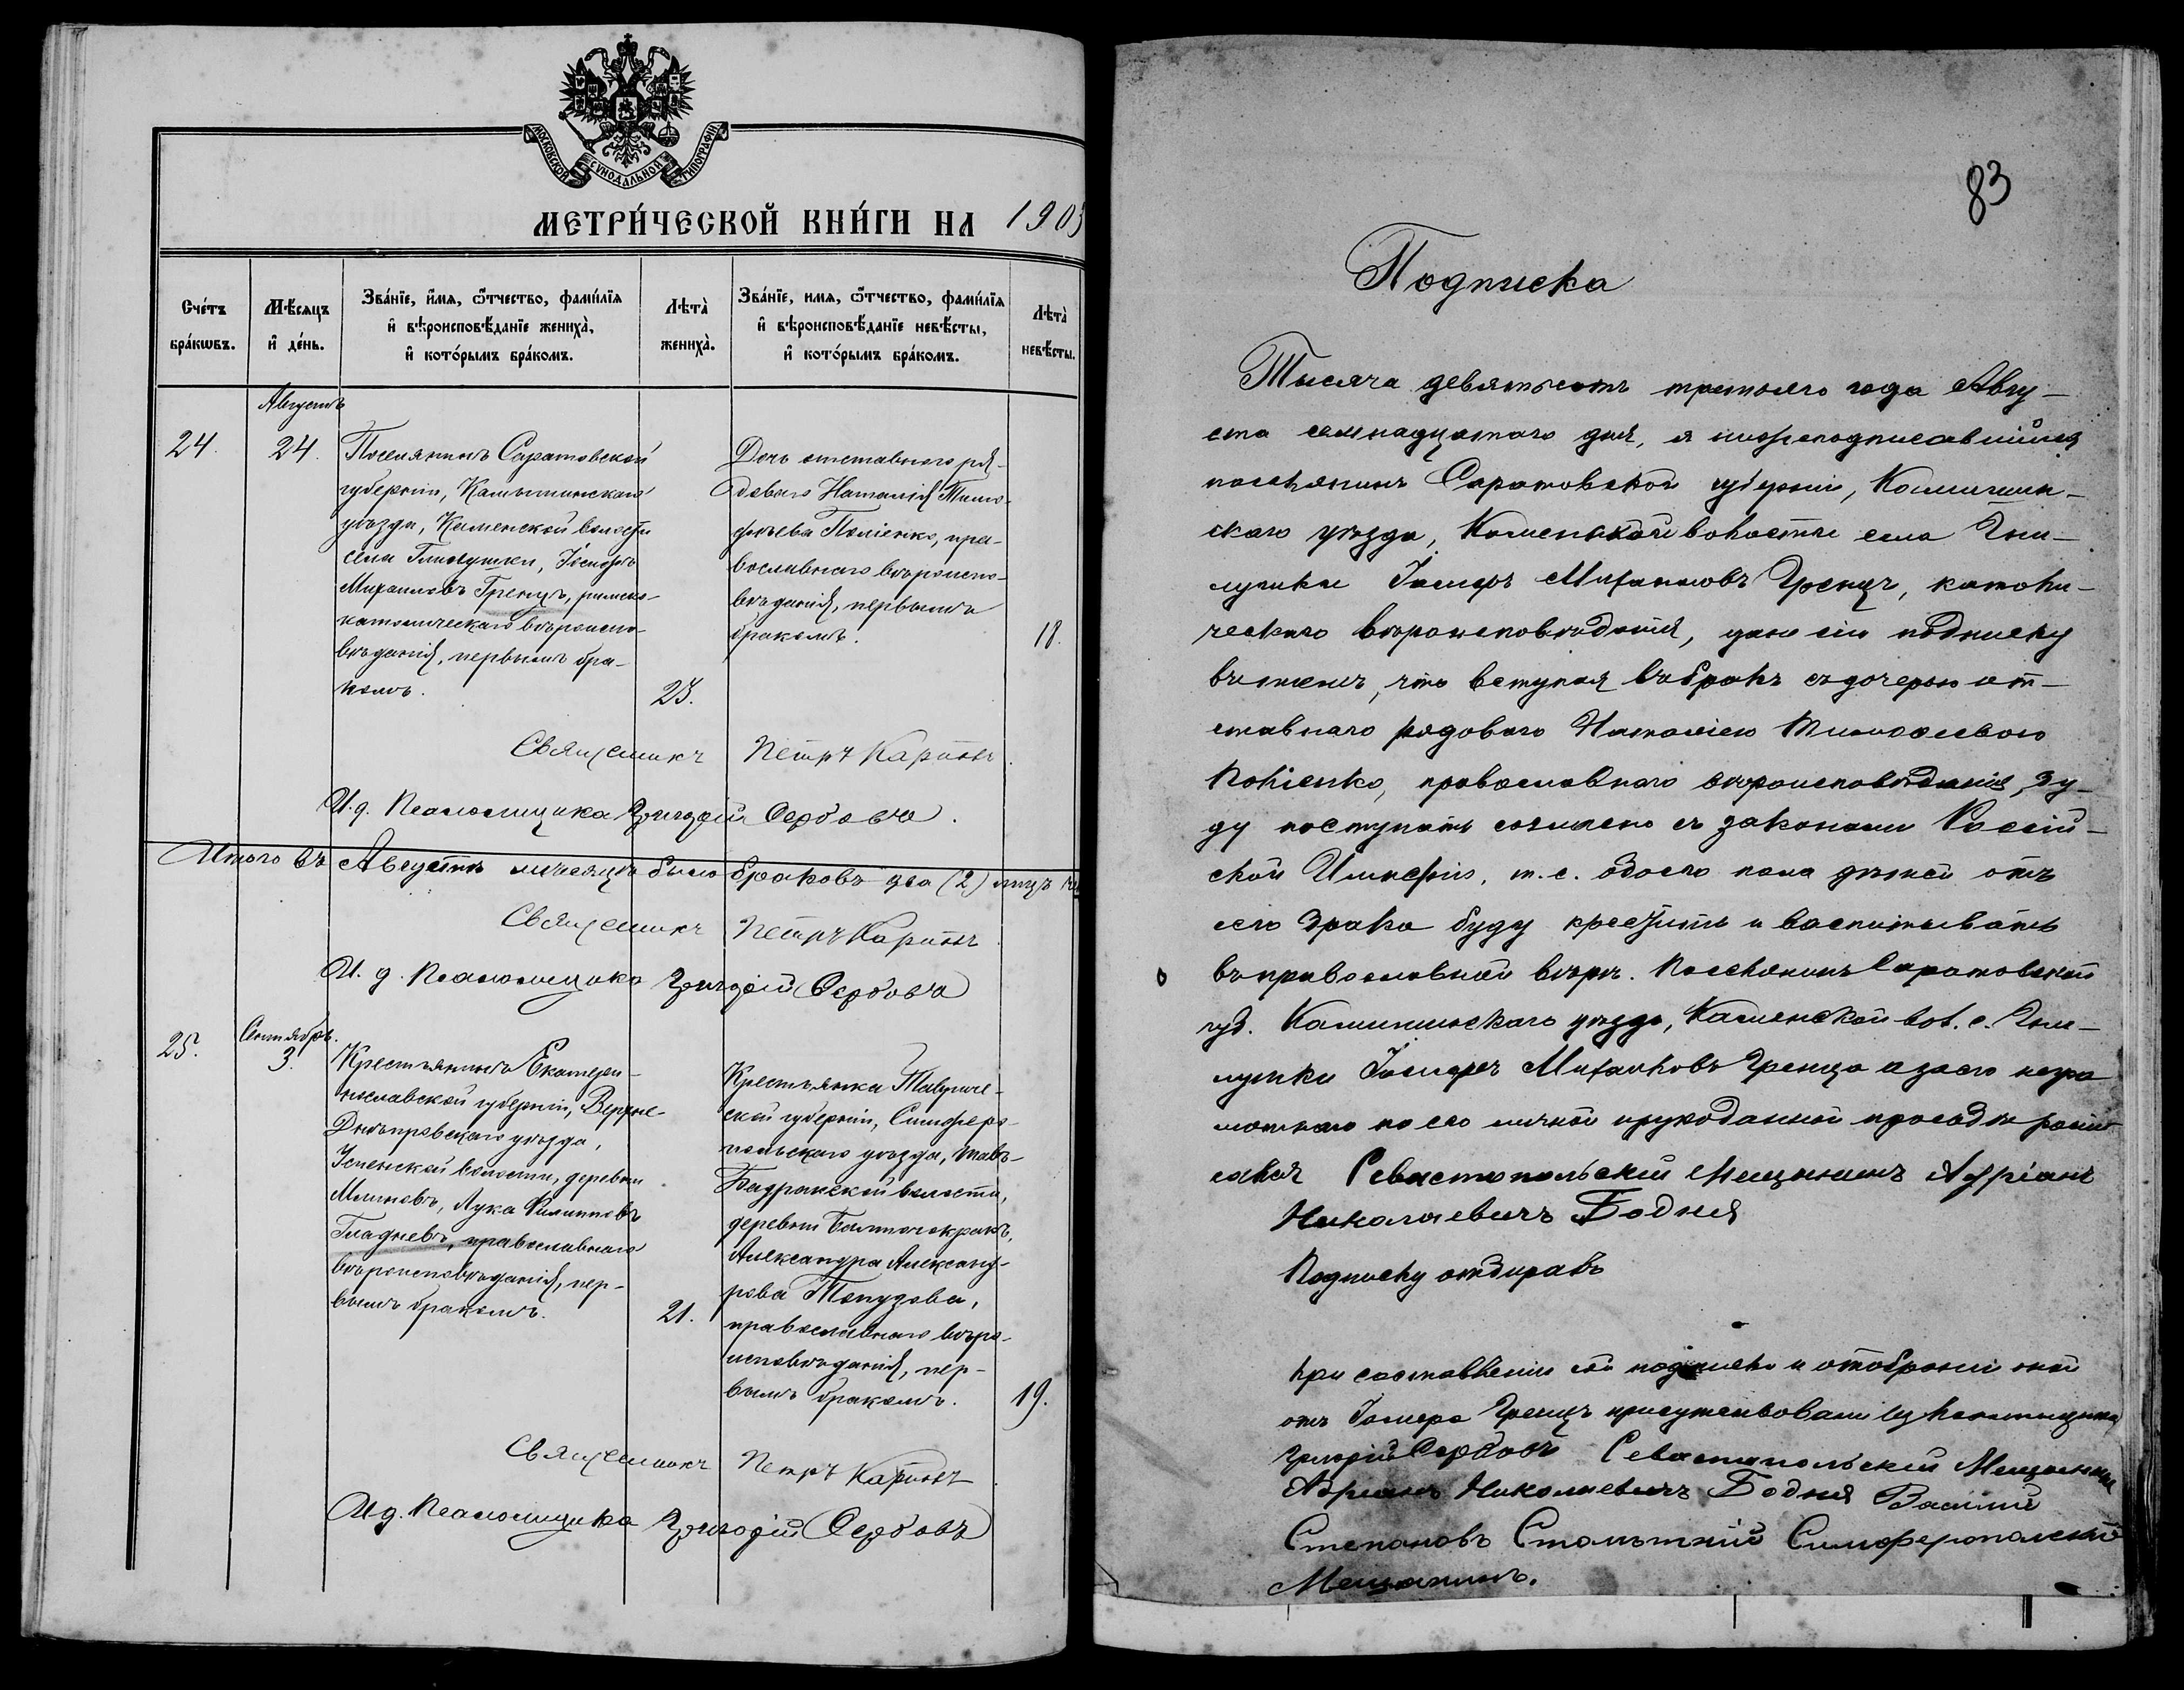 МОСКОВСКОЙ СѴНОДАЛЬНОЙ ТИПОГРАФІИ
МЕТРИ́ЧЕСКОЙ КНИ́ГИ НА 1903
Сче́тъ бра́кѡвъ.
Мѣ́сяцъ и҆ де́нь.
Зва́нїе, и҆́мѧ, ѻ҆́тчество, фами́лїѧ и҆ вѣ́роисповѣ́данїе жениха̀, и҆ кото́рымъ бра́комъ.
Лѣта̀ жениха̀.
Зва́нїе, имѧ, ѻ҆́тчество, фами́лїѧ и҆ вѣ́роисповѣ́данїе невѣ́сты, и҆ кото́рымъ бра́комъ.
Лѣта̀ невѣ́сты.
Августъ
24.
24.
Поселянинъ Саратовской
губерніи, Камышинскаго
уѣзда, Каменской волости
села Гнилушки, Іосифъ
Михаиловъ Гренцъ, римско-
католическаго вѣроиспо-
вѣданія, первымъ бра-
комъ.
23.
Дочь отставного ря-
доваго Наталія Тимо-
фѣева Поліенко, пра-
вославнаго вѣроиспо-
вѣданія, первымъ
бракомъ.
18.
Священникъ Петръ Карповъ
И. д. Псаломщика Григорій Сербовъ.
Итого въ Августѣ мѣсяцѣ было браковъ два (2)
Священникъ Петръ Карповъ
И. д. Псаломщика Григорій Сербовъ
25.
Сентябрь.
3.
Крестьянинъ Екатери-
нославской губерніи, Верхне-
Днѣпровскаго уѣзда,
Успенской волости, деревни
Млиновъ, Лука Филипповъ
Гладневъ, православнаго
вѣроисповѣданія, пер-
вымъ бракомъ.
21.
Крестьянка Тавриче-
ской губерніи, Симферо-
польскаго уѣзда, Тавъ-
Бадракской волости,
деревни Балтачокракъ,
Александра Александ-
рова Топузова,
православнаго вѣро-
исповѣданія, пер-
вымъ бракомъ.
19.
Священникъ Петръ Карповъ
И. д. Псаломщика Григорій Сербовъ
83
Подписка
Тысяча девятьсотъ третьяго года Авгу-
ста семнадцатаго дня, я нижеподписавшійся
поселянинъ Саратовской губерніи, Камышин-
скаго уѣзда, Каменской волости села Гни-
лушки Іосифъ Михаиловъ Гренцъ, католи-
ческаго вѣроисповѣданія, даю сію подписку
въ томъ, что вступая въ бракъ съ дочерью от-
ставнаго рядоваго Наталіею Тимофеевою
Поліенко, православнаго вѣроисповѣданія, бу-
ду поступать согласно съ законами Россій-
ской Имперіи, т. е. обоего пола дѣтей отъ
сего брака буду крестить и воспитывать
въ православной вѣрѣ. Поселянинъ Саратовской
губ. Камышинскаго уѣзда, Каменской вол. с. Гни-
лушки Іосифъ Михаиловъ Гренцъ а за него негра
мотнаго по его личной и рукоданной просьбѣ роспи
сался Севастопольскій Мещанинъ Адріанъ
Николаевичъ Бодня
Подписку отбиралъ
При составленіи сей подписки и отобраніи оной
отъ Іосифа Гренцъ присутствовали Псаломщика
Григорій Сербовъ Севастопольскій Мещанинъ
Адріанъ Николаевичъ Бодня Василій
Степановъ Столѣтній Симферопольскій
Мещанинъ.